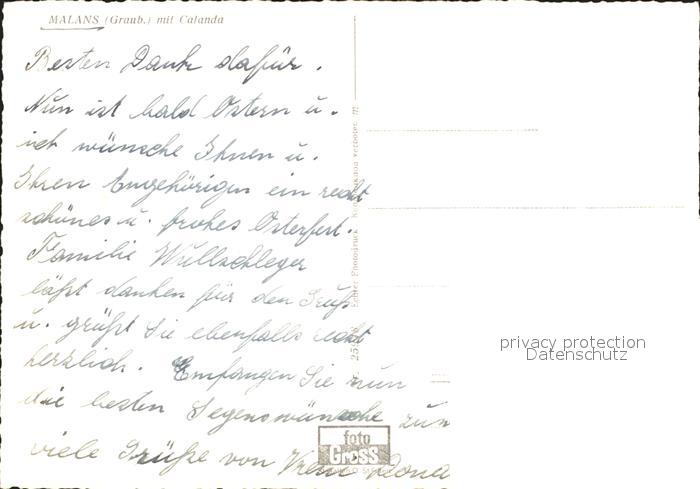 MALANS (Graub.) mit Calanda
Besten Dank dafür.
Nun ist bald Ostern u.
ich wünsche Ihnen u.
Ihren Angehörigen ein recht
schönes u. frohes Osterfest.
Familie Wullschleger
läßt danken für den Gruß
u. grüßt Sie ebenfalls recht
herzlich. Empfangen Sie nun
die besten Segenswünsche zum
viele Grüße von
foto
Gross
Echter Photodruck
privacy protection
Datenschutz